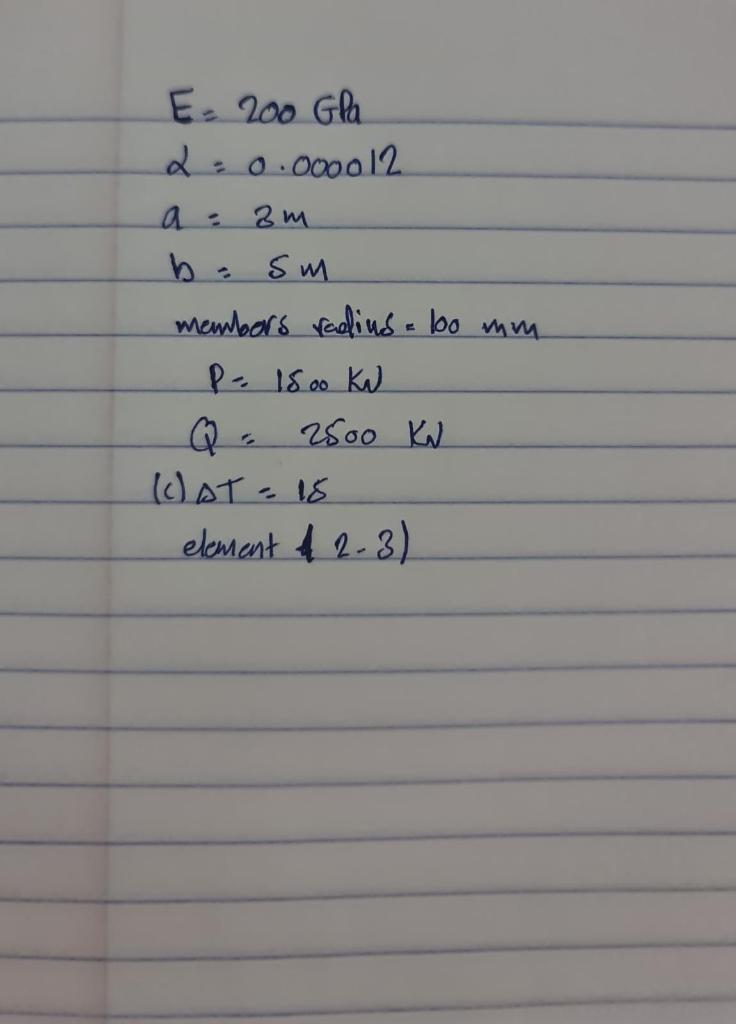 E = 200 GPa
α = 0.000012
a = 3m
b = 5m
members radius = 100 mm
P = 1500 KN
Q = 2500 KN
(c) ΔT = 15
element ( 2-3)